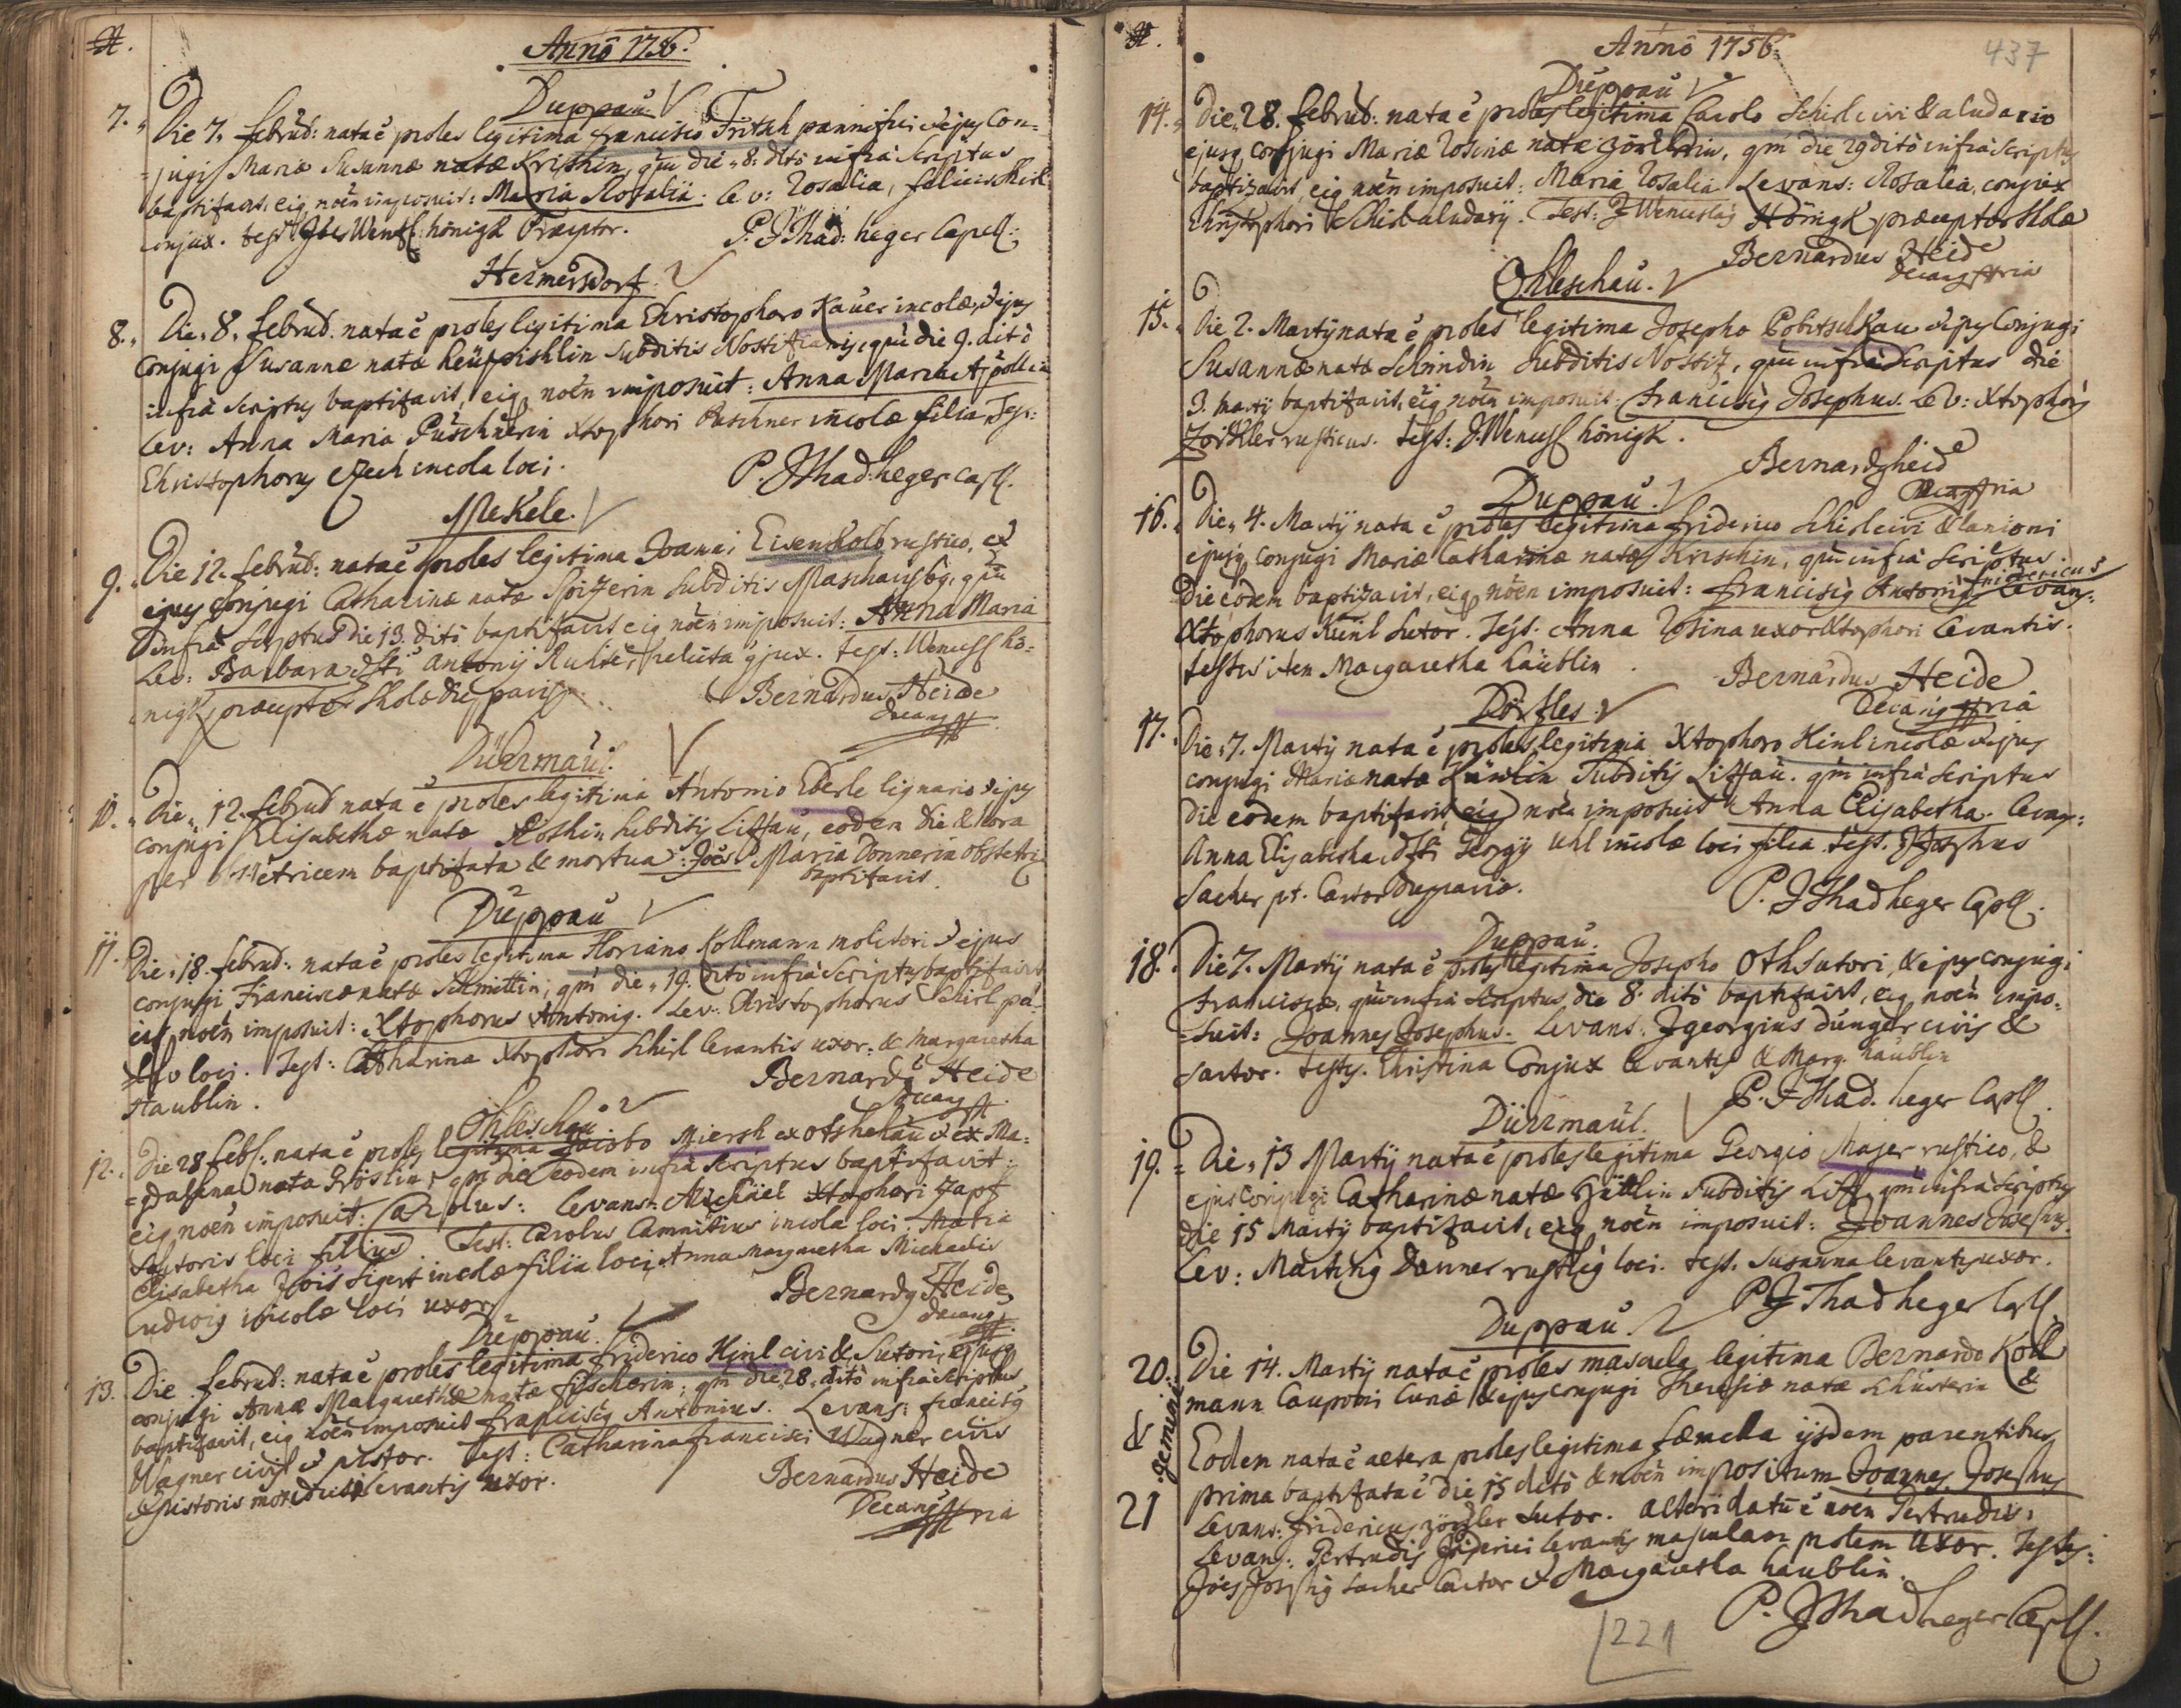 A.
Anno 1756.
Duppau.
7. Die 7. februa: nata ē proles legitima Francisco Fritsch pannifici & ejus Con=
=jugi Mariæ Susannæ natæ Krischin, qm̄ die 8. ditò infrà Scriptus
baptizavit, eiq noēn imposuit: Maria Rosalia. Lev: Rosalia, felicis Schirl
conjux. test Joēs Wentzl hönigk Præceptor.
P. J Thad: heger Capell:
Hermersdorf.
8. Die 8. februa. nata ē proles legitima Christophoro Kauer incolæ & ejus
Conjugi Susannæ natæ subditis Nostitianis, qm̄ die 9. ditò
infrà Scriptus baptizavit, eiq noēn imposuit: Anna Maria
Lev: Anna Maria Puschnerin Xtophori Puschner incolæ filia Test:
Christophorus Czech incola loci.
P. J Thad: heger Capll.
Mekele.
9. Die 12. februa: nata ē proles legitima Joanni Eisenkolb rustico, et
ejus Conjugi Catharinæ natæ Spizerin subditis qm̄
infrà Scriptus die 13. ditò baptizavit eiq noēn imposuit: Anna Maria
Lev: Barbara Antonij relicta conjux. test: Wencesl hö=
nigk, præceptor Scholæ
Bernardus Heide
Decanus
Dürrmaul.
10. Die 12. februa nata ē proles legitima Antonio Eberle lignario & ejus
conjugi Elisabethæ natæ subditis Littau, eodem die & hora
per obstetricem baptizata & mortua: Maria Donnerin Obstetrix
baptizavit.
Duppau
11. Die 18. februa: nata ē proles legitima Floriano Kollmann molitori & ejus
conjugi Franciscæ natæ Schmittin; qm̄ die 19. ditò infrà Scriptus baptizavit
eiq noēn imposuit: Xtophorus Antonius. Lev: Christophorus Schirl
loci. Test: Catharina Xtophori Schirl levantis uxor: & Margaretha
Haublin.
Bernardus Heide
Decanus
Ohleschau
12. Die 28 feb: nata ē proles legitima Jacobo Miersch ex & ex Ma=
=gdalena nata Gröslin; qm̄ die eodem infrà Scriptus baptizavit
eiq noēn imposuit: Carolus: Levans: Michäel Xtophori Zapf
loci filius. Test: Carolus Camnitius incola loci. Maria
Elisabetha Sigert incolæ filia loci, Anna Margaretha Michaelis
Ludwig incolæ loci uxor
Bernardus Heide
Decanus
Duppau.
13. Die februa: nata ē proles legitima Friderico Hinl civi & Sutori, ejusq
conjugi Annæ Margarethæ natæ fischerin; qm̄ die 28. ditò infrà scriptus
baptizavit, eiq noēn imposuit Franciscus Antonius. Levans: franciscus
Wagner civis & pistor. Test: Catharina francisci Wagner civis
& pistoris levantis uxor.
Bernardus Heide
Decanus
A.
Anno 1756.
437
Duppau
14. Die 28. februa: nata ē proles legitima Carolo Schirl civi & aludario
ejusq conjugi Mariæ Rosinæ natæ qm̄ die 29 ditò infrà scriptus
baptizavit, eiq noēn imposuit: Maria Rosalia Levans: Rosalia, conjux
Christophori Schirl aludarij. Test: J Wenceslaus Hönigk præceptor Scholæ
Bernardus Heide
Decanus
Ohleschau.
15. Die 2. Martij nata ē proles legitima Josepho Pobitschkau & ejus Conjugi
Susannæ natæ Schindin subditis Nostiz, qm̄ infrà Scriptus die
3. Martij baptizavit, eiq noēn imposuit: Franciscus Josephus. Lev: Xtophorus
rusticus. test: J. Wencesl hönigk.
Bernardus heide
Duppau.
16. Die 4. Martij nata ē proles legitima Friderico Schirl civi & lanioni
ejusq Conjugi Mariæ Catharinæ natæ Krischin, qm̄ infrà Scriptus
die eodem baptizavit, eiq noēn imposuit: Franciscus Antonius Fridericus Levans:
Xtophorus Kienl Sutor. Test: Anna Rosina uxor Xtophori Levantis.
testis item Margaretha häublin.
Bernardus Heide
Decanus
Dörfles.
17. Die 7. Martij nata ē proles legitima Xtophoro Hinl incolæ & ejus
conjugi Mariæ natæ subditis Littau. qm̄ infrà scriptus
die eodem baptizavit eiq noēn imposuit Anna Elisabetha. Levans:
Anna Elisabetha, Georgij Uhl incolæ loci filia. test. Josephus
Sacher Duppaviæ.
P. J Thad heger Capll.
Duppau.
18. Die 7. Martij nata ē proles legitima Josepho Oth Sutori, & ejus conjugi
Franciscæ, qm̄ infrà scriptus die 8. ditò baptizavit, eiq noēn impo=
=suit: Joannes Josephus. Levans: J georgius dünger civis &
sartor. testes. Christina Conjux levantis & Marg. häublin
P. J Thad. heger Capll.
Dürrmaul.
19. Die 13 Martij nata ē proles legitima Georgio Majer rustico, &
ejus Conjugi Catharinæ natæ subditis Litt. qm̄ infrà scriptus
die 15 Martij baptizavit, eiq noēn imposuit: Joannes Josephus.
Lev: Martinus Donner rusticus loci. test. Susanna levantis uxor.
P. J Thad heger Capll
Duppau.
20. Die 14. Martij nata ē proles mascula legitima Bernardo Koll
mann Cauponi & ejus conjugi Theresiæ natæ Schusterin &
& gemini
Eodem nata ē altera proles legitima fæmella ijsdem parentibus
prima baptizata ē die 15 ditò & noēn impositum Joannes Josephus
21 Levans: fridericus sutor. alteri datū ē noēn Gertrudis.
Levans: Gertrudis friderici levantis masculam prolem uxor. Testes:
Joēs Josephus Sacher & Margaretha haublin.
P. J Thad heger Capll.
221